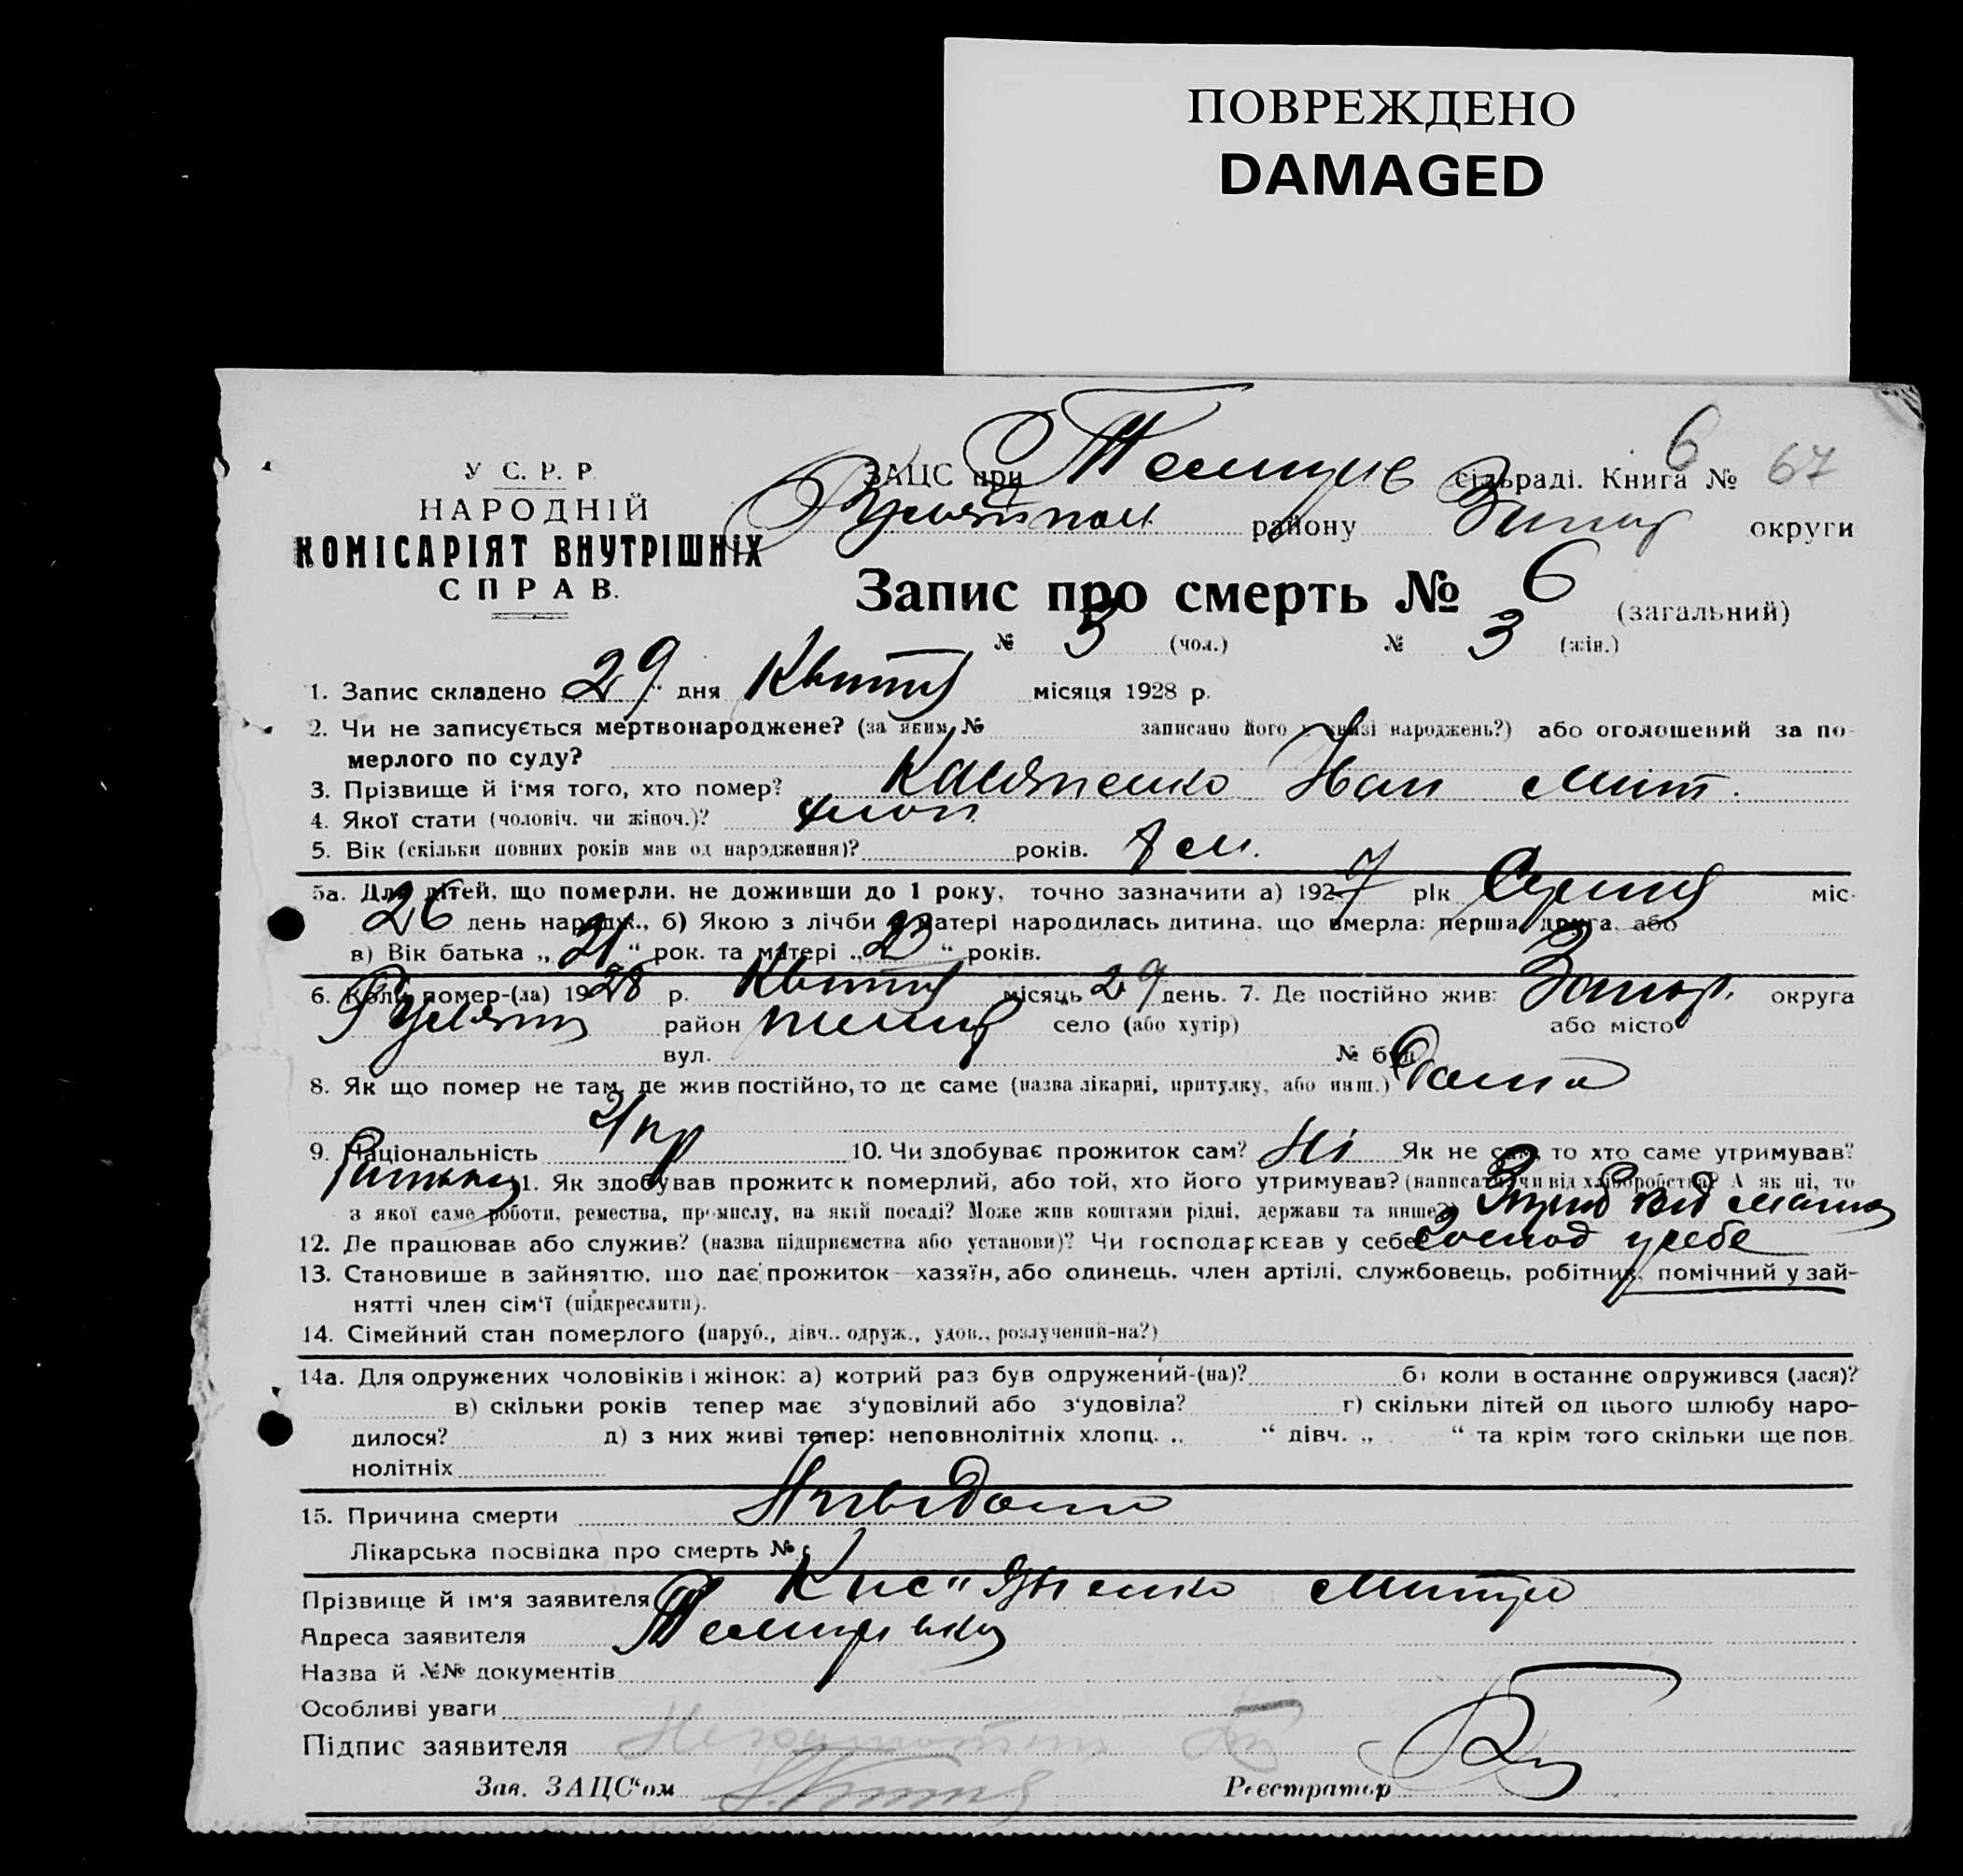 ПОВРЕЖДЕНО
DAMAGED
У С. Р. Р.
НАРОДНІЙ
КОМІСАРІЯТ ВНУТРІШНІХ
СПРАВ.
ЗАЦС при Темирів сільраді. Книга № 6 67
району Запор округи
Запис про смерть № 6 (загальний)
№ 3 (чол.) № 3 (жін.)
1. Запис складено „29" дня Квітня місяця 1928 р.
2. Чи не записується мертвонароджене? (за яким № записано його у книзі народжень?) або оголошений за по-
мерлого по суду?
3. Прізвище й і'мя того, хто помер? Касяненко Іван Мит.
4. Якої стати (чоловіч. чи жіноч.)? чолов
5. Вік (скільки повних років мав од народження)? років. 8 м.
5а. Для дітей, що померли, не доживши до 1 року, точно зазначити а) 1927 рік Серпня міс.
26 день народж., б) Якою з лічби у матері народилась дитина, що вмерла: перша, друга, або
в) Вік батька „21" рок. та матері „ " років.
6. Коли помер-(ла) 1928 р. Квітня місяць 29 день. 7. Де постійно жив: Запор. округа
район село (або хутір) або місто
вул. № буд.
8. Як що помер не там, де жив постійно, то де саме (назва лікарні, притулку, або инш.) дома
9. Національність Укр 10. Чи здобуває прожиток сам? Ні Як не сам, то хто саме утримував?
Батьки 11. Як здобував прожиток померлий, або той, хто його утримував? (написати чи від хліборобства? А як ні, то
з якої саме роботи, ремества, промислу, на якій посаді? Може жив коштами рідні, держави та инше?)
12. Де працював або служив? (назва підприємства або установи)? Чи господарював у себе? Господ у себе
13. Становище в зайняттю, що дає прожиток—хазяїн, або одинець, член артілі, службовець, робітник, помічний у зай-
нятті член сім'ї (підкреслити).
14. Сімейний стан померлого (паруб., дівч., одруж., удов., розлучений-на?)
14а. Для одружених чоловіків і жінок: а) котрий раз був одружений-(на)? б) коли востаннє одружився (лася)?
в) скільки років тепер має з'удовілий або з'удовіла? г) скільки дітей од цього шлюбу наро-
дилося? д) з них живі тепер: неповнолітніх хлопц. „ " дівч. „ " та крім того скільки ще пов.
нолітніх
15. Причина смерти Невідома
Лікарська посвідка про смерть №
Прізвище й ім'я заявителя Кас"яненко Митро
Адреса заявителя Темирівка
Назва й №№ документів
Особливі уваги
Підпис заявителя Неграмотний
Зав. ЗАЦС'ом Реєстратор